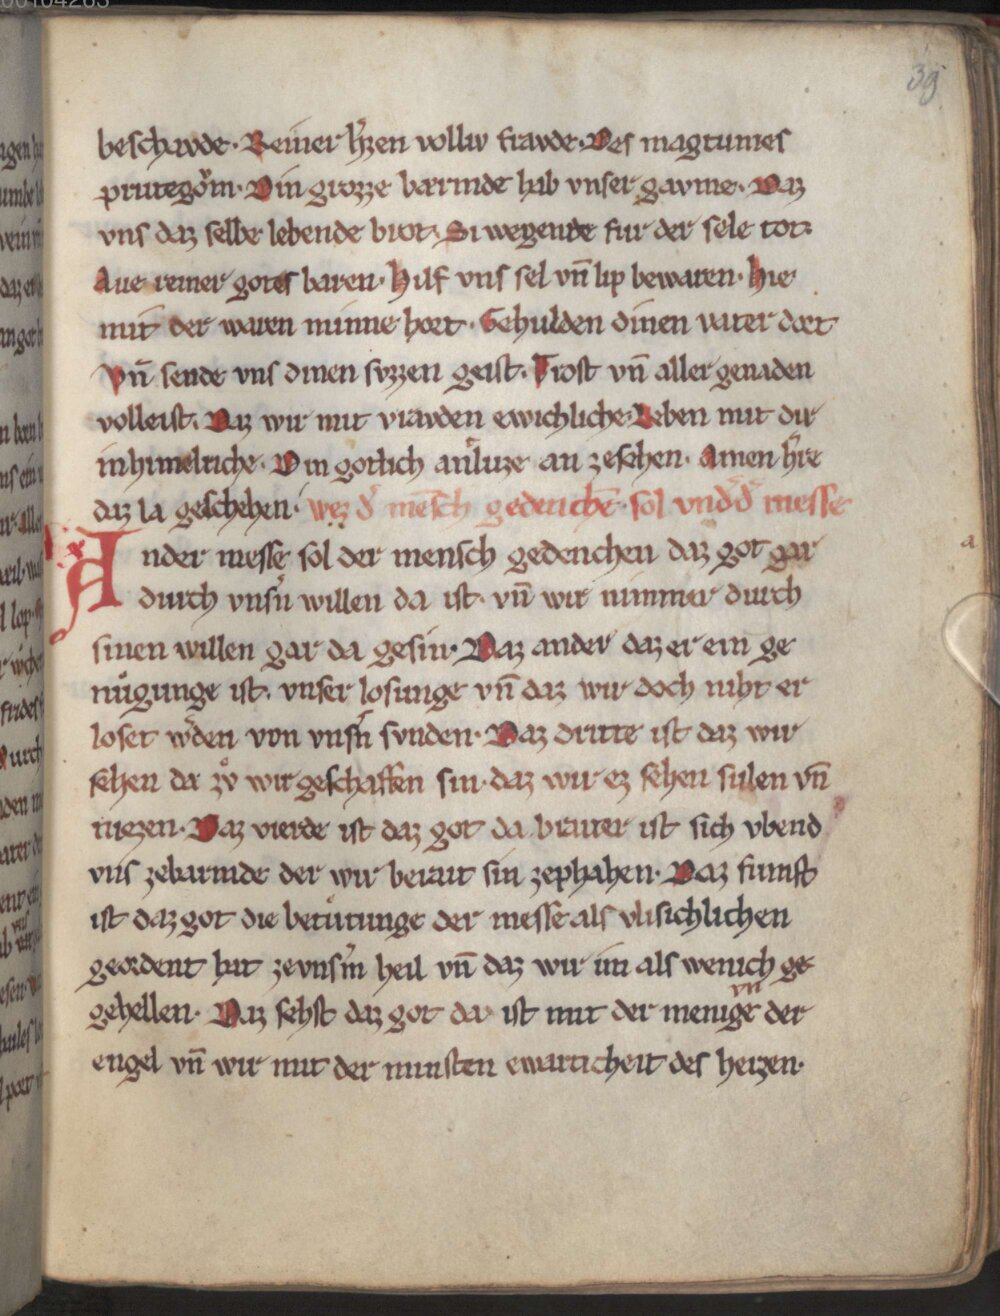 39
beschawde. Reiner hˀzen volliv frawde. Des magtumes
prutegoͮm. Din grozze bærmde hab vnser gavme. Daz
vns daz selbe lebende brot. Si wegende fur der sele tot.
Aue reiner gotes baren. Hilf vns sel vn̄ lip bewaren. Hie
mit der waren minne hort. Gehulden dinen vater dort
Vn̄ sende vns dinen svzzen geist. Trost vn̄ aller genaden
volleist. Daz wir mit vrawden ewichliche. Leben mit dir
in himelriche. Din gotlich antluze an zesehen. Amen hˀre
daz la geschehen. wez dˀ mēsch gedenchē sol vndˀ dˀ messe
Ander messe sol der mensch gedenchen daz got gar
durch vnsˀn willen da ist. vn̄ wir nimmer durch
sinen willen gar da gesin. Daz ander daz er ein ge
nuͦgunge ist. vnser losunge vn̄ daz wir doch niht er
loset wˀden von vnsˀn svnden. Daz dritte ist daz wir
sehen da zvͦ wir geschaffen sin. daz wir ez sehen suln vn̄
niezen. Daz vierde ist daz got da braiter ist sich vbend
vns zebarmde der wir berait sin zephahen. Daz fumft
ist daz got die betuͤtunge der messe als vlisichlichen
geordent hat zevnsˀm heil vn̄ daz wir im als wenich ge
gehellen. Daz sehst daz got da ist mit der menige der
vn̄
engel vn̄ wir mit der minsten ewarticheit des herzen.
a